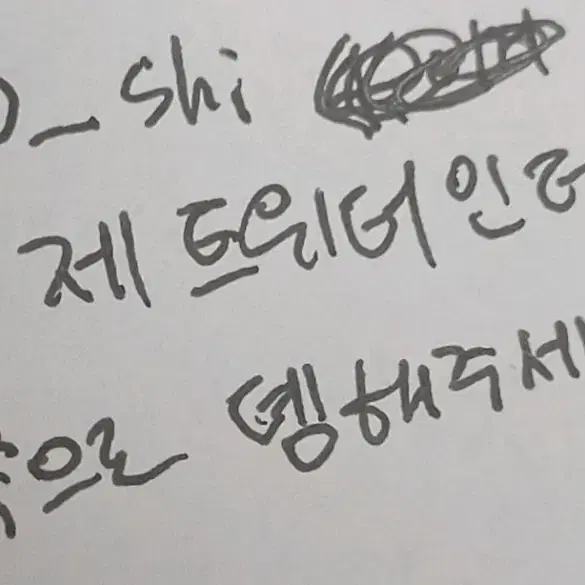 _shi
제 트위터 인
으로 뎀해주세